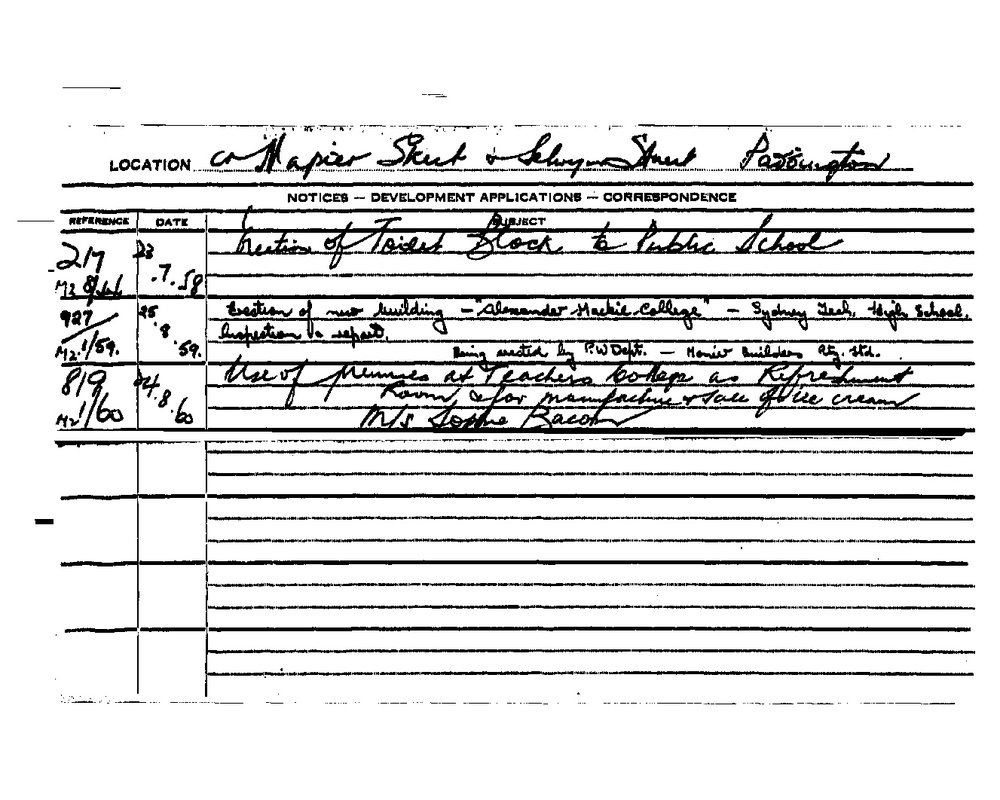 LOCATION cr Napier Street & Selwyn Street Paddington
NOTICES — DEVELOPMENT APPLICATIONS — CORRESPONDENCE
REFERENCE DATE SUBJECT
217 23 Erection of Toilet Block to Public School
.7.58
927 25. Erection of new building - "Alexander Mackie College" - Sydney Tech. High School.
.8 Inspection & report.
M2.1/59. .59. Being erected by P.W Dept. - Monier Builders Pty. Ltd.
819 24. Use of premises at Teachers College as Refreshment
.8 Room, & for manufacture & sale of ice cream
M2 1/60 .60 M/s Bacon